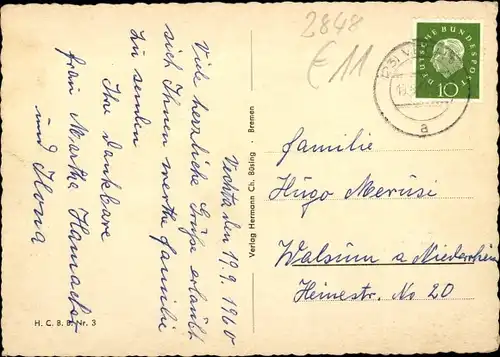 2848
€ 11
DEUTSCHE BUNDESPOST
10
a
Vechta den 19.9.1960
Viele herzliche Grüße erlaubt
sich Ihnen werthe Familie
zu senden
Ihre dankbare
Frau Martha Hamacher
und Ilona
Verlag Hermann Ch. Büsing - Bremen
Familie
Hugo Merüsi
Walsum a Niederrhein
Heinestr. No 20
H. C. B. B. Nr. 3